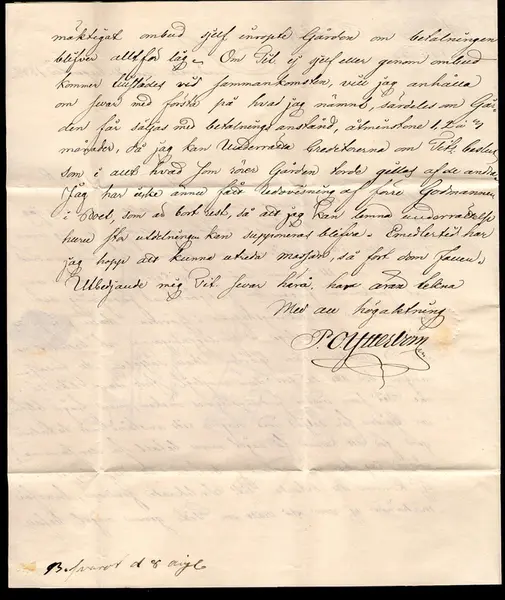 mäktigat ombud sjelf inropte Gården om betalningen
blifver alltför låg. Om Tit. ej sjelf eller genom ombud
kommer tillstädes vid sammankomsten, vill jag anhålla
om svar med första på hvad jag nämnt, särdeles om Går-
den får säljas med betalnings anstånd, åtminstone 1, 2 à 3
månader, då jag kan underrätta Creditorerna om Tit. beslut,
som i allt hvad som rörer Gården torde gillas af de andra.
Jag har icke ännu fått redovisning af förre Godmannen
i Boet, som är bortrest, så att jag kan lemna underrättelse
huru stor utdelningen kan supponeras blifva. Emedlertid har
jag hopp att kunna utreda massan, så fort som
Utbedjande mig Tit. svar härå, har äran tekna
Med all högaktning
P. O. Ytterström
Besvarat d 8